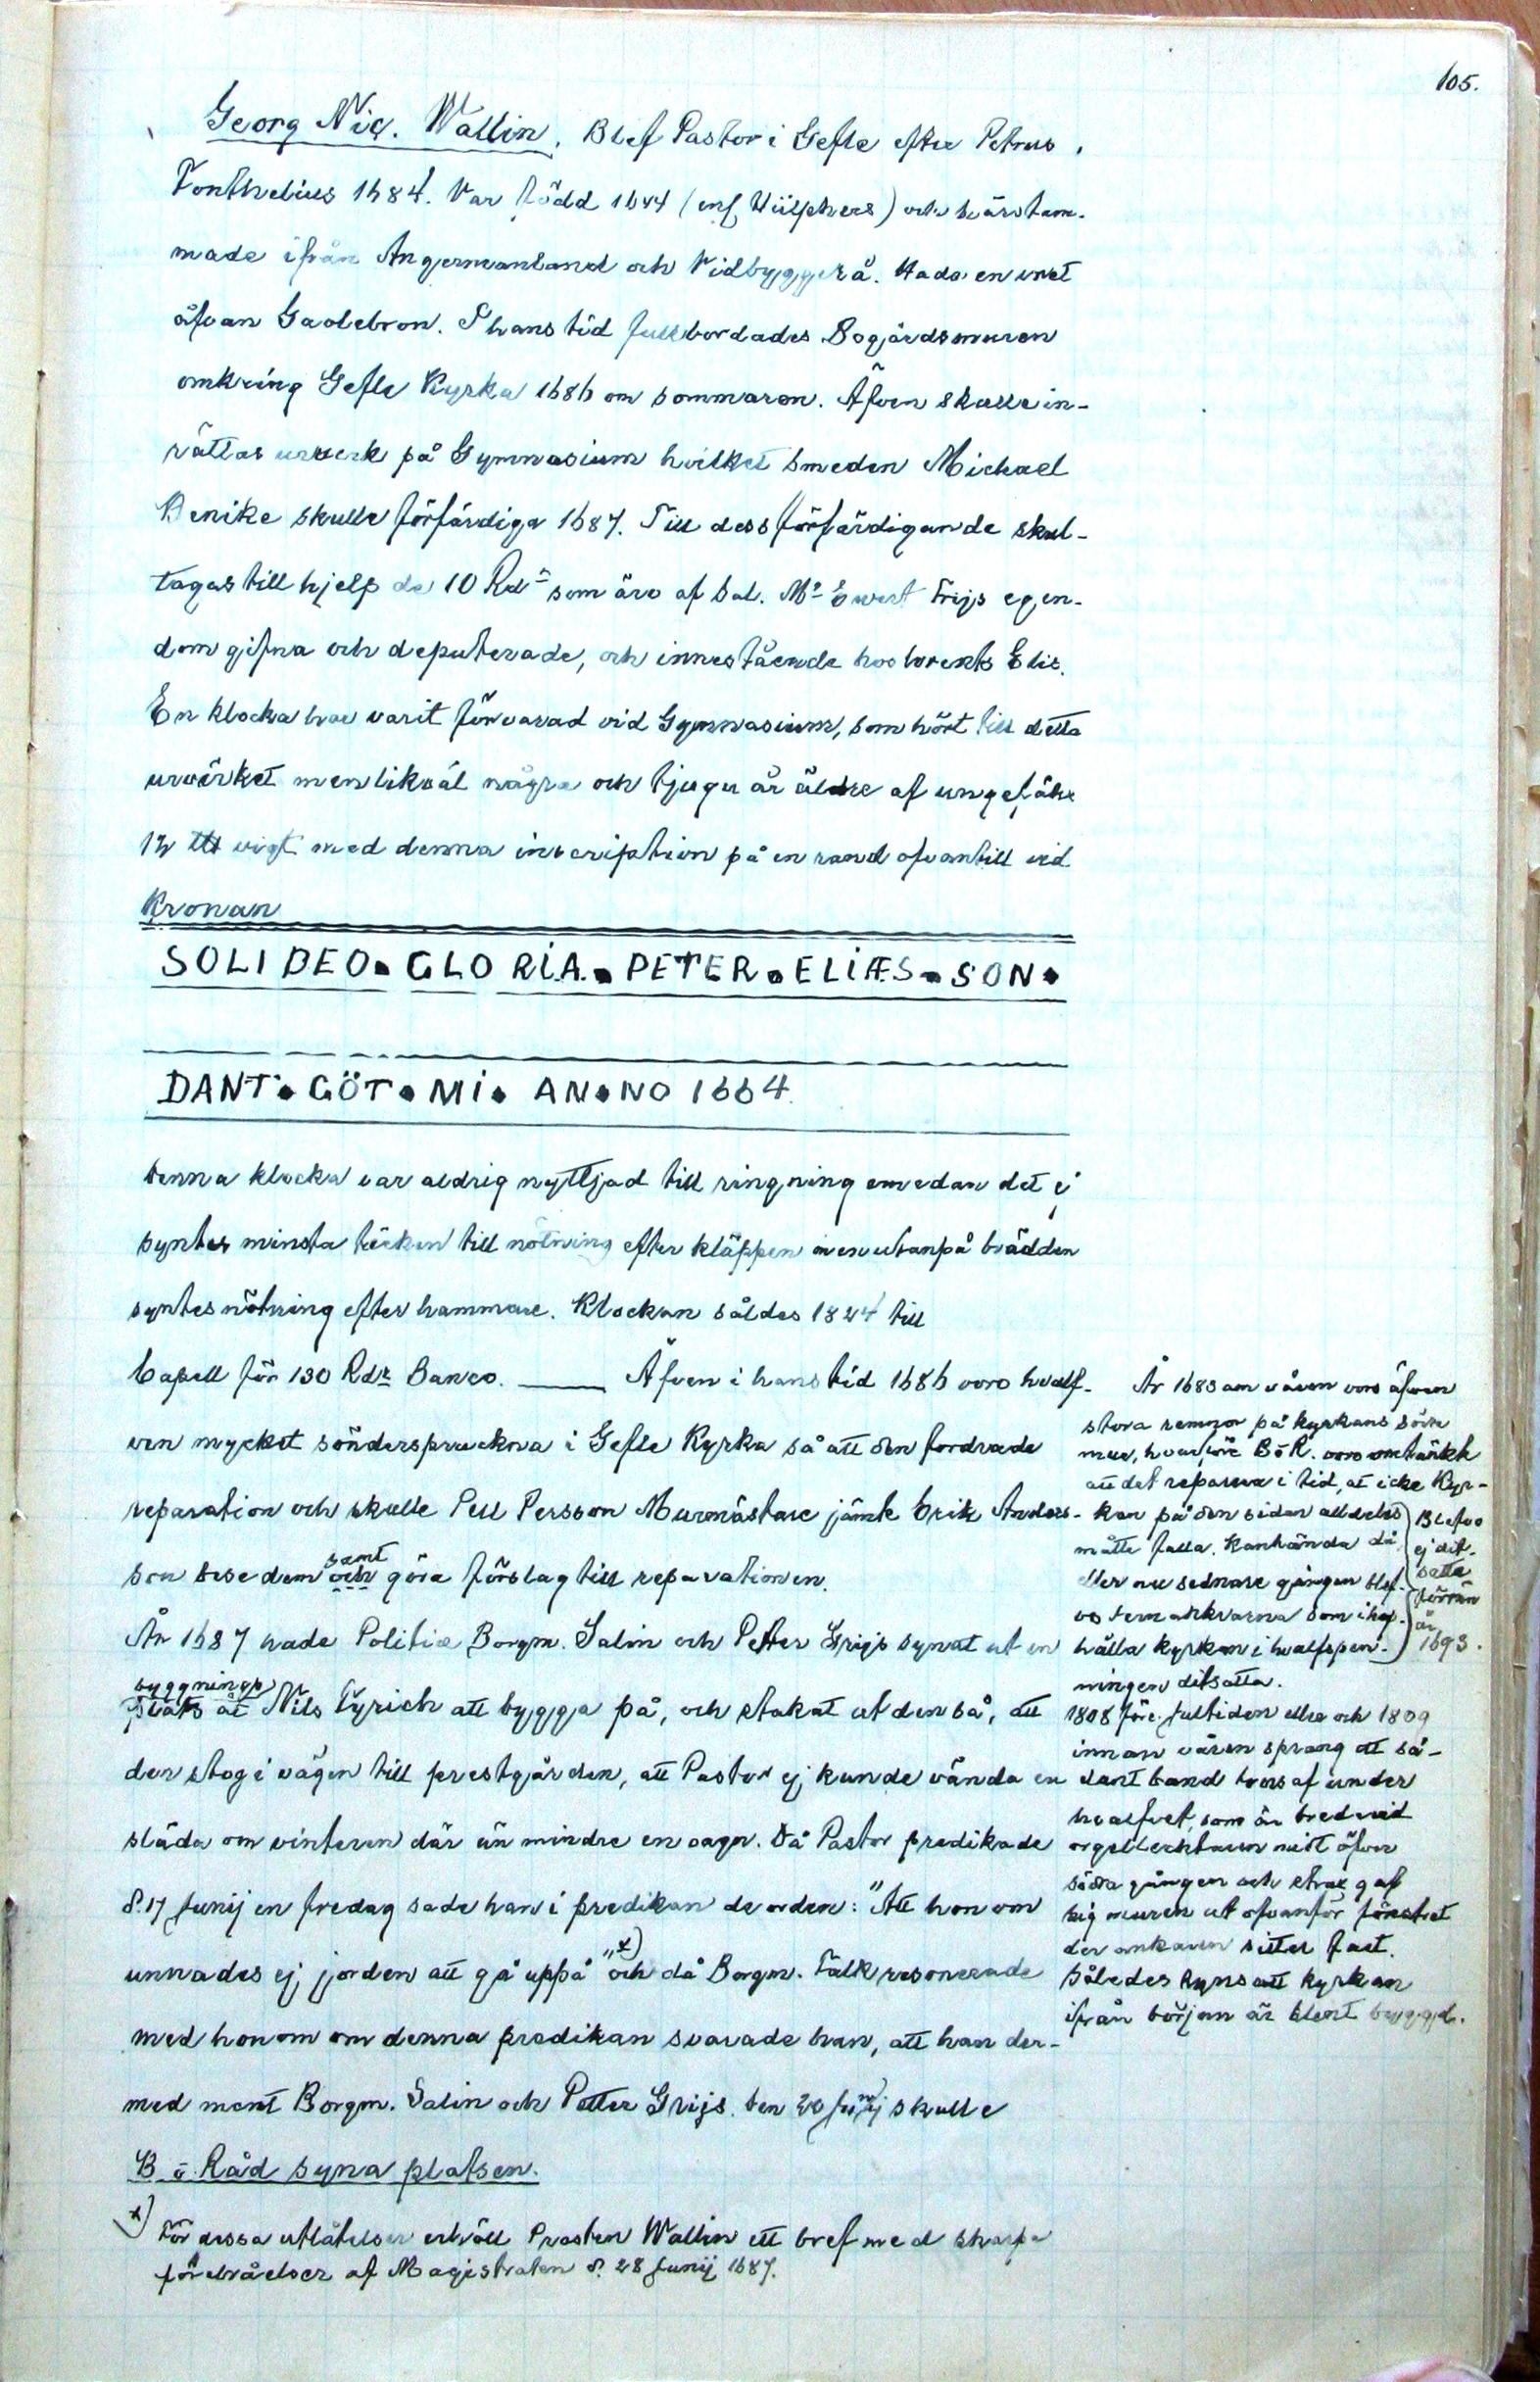 105.
Georg Nic. Wallin. Blef Pastor i Gefle efter Petrus
Fonthelius 1684. Var född 1644 (enl. Hülphers) och härstam-
made ifrån Angermanland och Vidbyggerå. Hade en
åfvan Gaolebron. I hans tid fullbordades Bogårdsmuren
omkring Gefle Kyrka 1686 om sommaren. Äfven skulle in-
rättas urverk på Gymnasium hvilket smeden Michael
Benike skulle förfärdiga 1687. Till dess förfärdigande skul-
tagas till hjelp de 10 Rdr som äro af Sal. Mr Ewert Frijs egen-
dom gifna och deputerade, och innestående hos Lorents Elis.
En klocka har varit förvarad vid Gymnasium, som hört till detta
urvärket men likväl några och tjugu år äldre af ungefähr
vigt med denna inscription på en rand ofvantill vid
Kronan
SOLI DEO. GLORIA. PETER. ELIÆS. SON.
DANT. GÖT. MI. AN.NO 1664.
Denna klocka var aldrig nyttjad till ringning emedan det ej
syntes minsta täcken till nötning efter kläppen men utanpå brädden
syntes nötning efter hammare. Klockan såldes 1824 till
Capell för 130 Rdr Banco. — Äfven i hans tid 1686 voro hvalf-
ven mycket sönderspruckna i Gefle Kyrka så att den fordrade
reparation och skulle Pell Persson Murmästare jämte Erik Anders-
son bese dem och samt göra förslag till reparationen.
År 1687 hade Politiæ Borgm. Salin och Petter Grijs synat ut en
byggnings
plats åt Nils Tyrich att bygga på, och stakat ut den så, att
den stog i vägen till prestgården, att Pastor ej kunde vända en
släda om vinteren där än mindre en vagn. Då Pastor predikade
d. 17 Junij en fredag sade han i predikan de orden: "Att honom
unnades ej jorden att gå uppå" x) och då Borgm. Falk resonerade
med honom om denna predikan svarade han, att han der-
med ment Borgm. Salin och Petter Grijs. Den 20 Junij skulle
B. o Råd syna platsen.
x) För dessa utlåtelser erhöll Prosten Wallin ett bref med skarpa
förebråelser af Magistraten d. 28 Junij 1687.
År 1683 om våren voro äfven
stora remnor på kyrkans södra
mur, hvarföre B o R. voro omtänkte
att det reparera i tid, at icke Kyr-
kan på den sidan alldeles
måtte falla. Kanhända då
eller nu sednare gången blef-
vo jernankrarna som ihop-
hålla kyrkan i hvalfspen-
ningen ditsatta.
Blefvo
ej dit-
satte
förrän
år
1693.
1808 före Jultiden eller och 1809
innan våren sprang ett så-
dant band tvers af under
hvalfvet, som är bredvid
orgelleckturen mitt öfver
södra gången och strax gaf
sig muren ut ofvanför fönstret
der ankaren sitter fast.
Således synes att kyrkan
ifrån början är klent byggd.